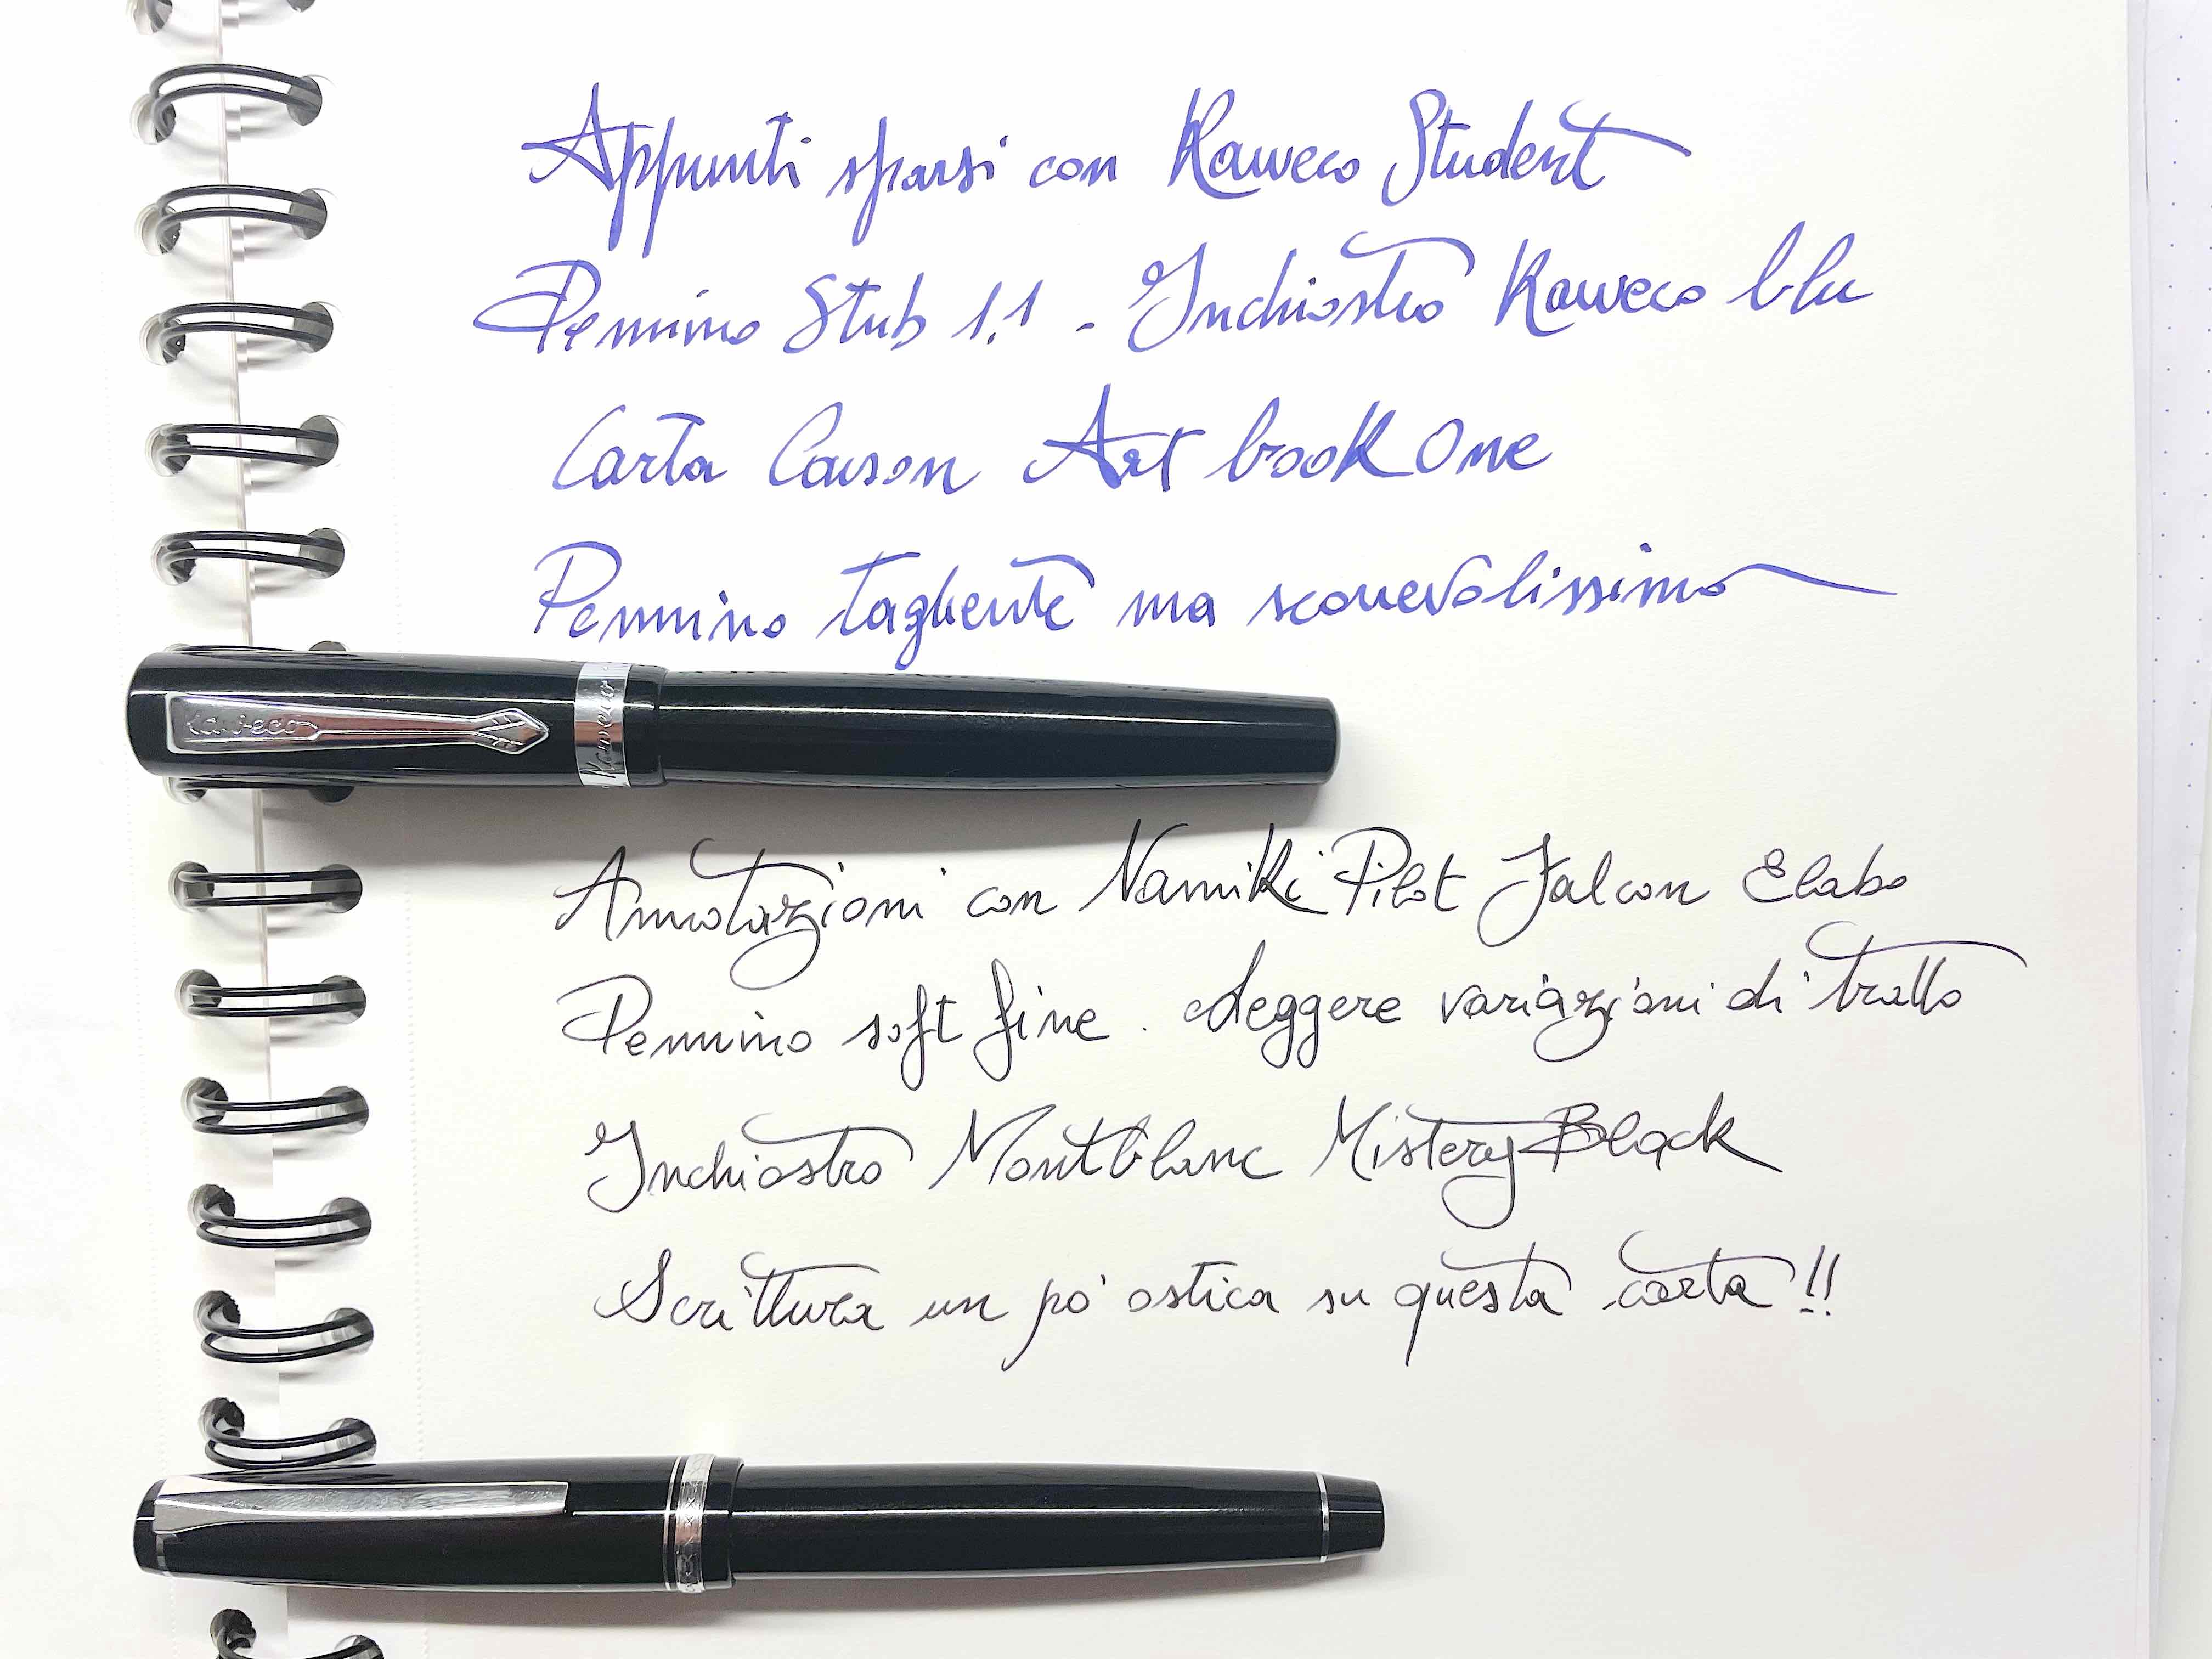 Appunti sparsi con Kaweco Student
Pennino Stub 1.1 - Inchiostro Kaweco blu
Carta Canson Art book One
Pennino tagliente ma scorrevolissimo
Kaweco
Kaweco
Annotazioni con Namiki Pilot Falcon Elabo
Pennino soft fine. Leggere variazioni di tratto
Inchiostro Montblanc Mistery Black
Scrittura un po' ostica su questa carta!!